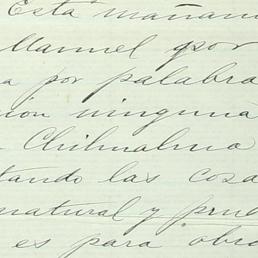 Esta mañana
Manuel por
a por palabra
ion ninguna
Chihualma
tando las cosa
natural y prud
es para obra